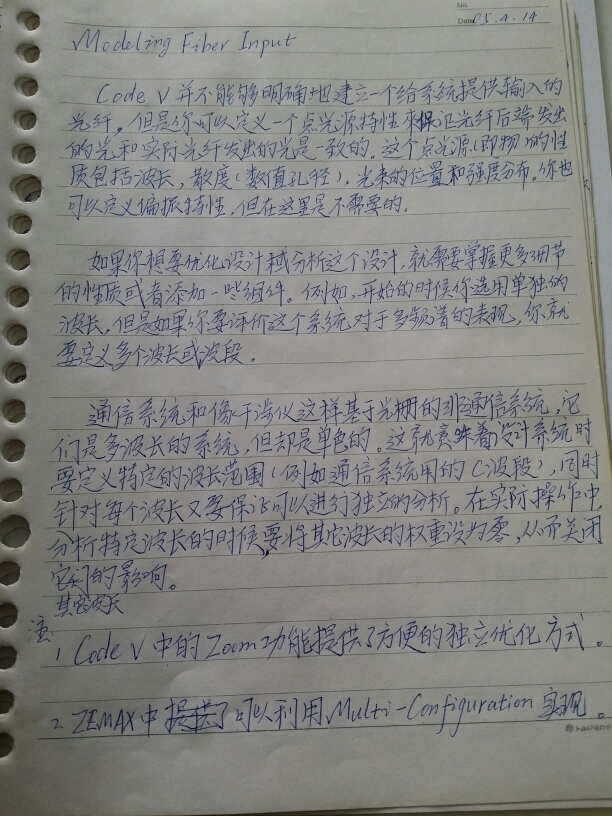 No.
Date 05.4.14
Modeling Fiber Input
Code V 并不能够明确地建立一个给系统提供输入的
光纤。但是你可以定义一个点光源特性来保证光纤后端发出
的光和实际光纤发出的光是一致的。这个点光源(即物)的性
质包括波长,散度(数值孔径),光束的位置和强度分布。你也
可以定义偏振特性,但在这里是不需要的。
如果你想要优化设计或分析这个设计,就需要掌握更多细节
的性质或者添加一些组件。例如,开始的时候你选用单独的
波长,但是如果你要评价这个系统对于多频谱的表现,你就
要定义多个波长或波段。
通信系统和像干涉仪这样基于光栅的非通信系统,它
们是多波长的系统,但却是单色的。这就意味着设计系统时
要定义特定的波长范围(例如通信系统用的C波段),同时
针对每个波长又要保证可以进行独立的分析。在实际操作中,
分析特定波长的时候,要将其它波长的权重设为零,从而关闭
它们的影响。
其它波长
注
1. Code V 中的Zoom功能提供了方便的独立优化方式。
2. ZEMAX中可以利用Multi-Configuration实现。